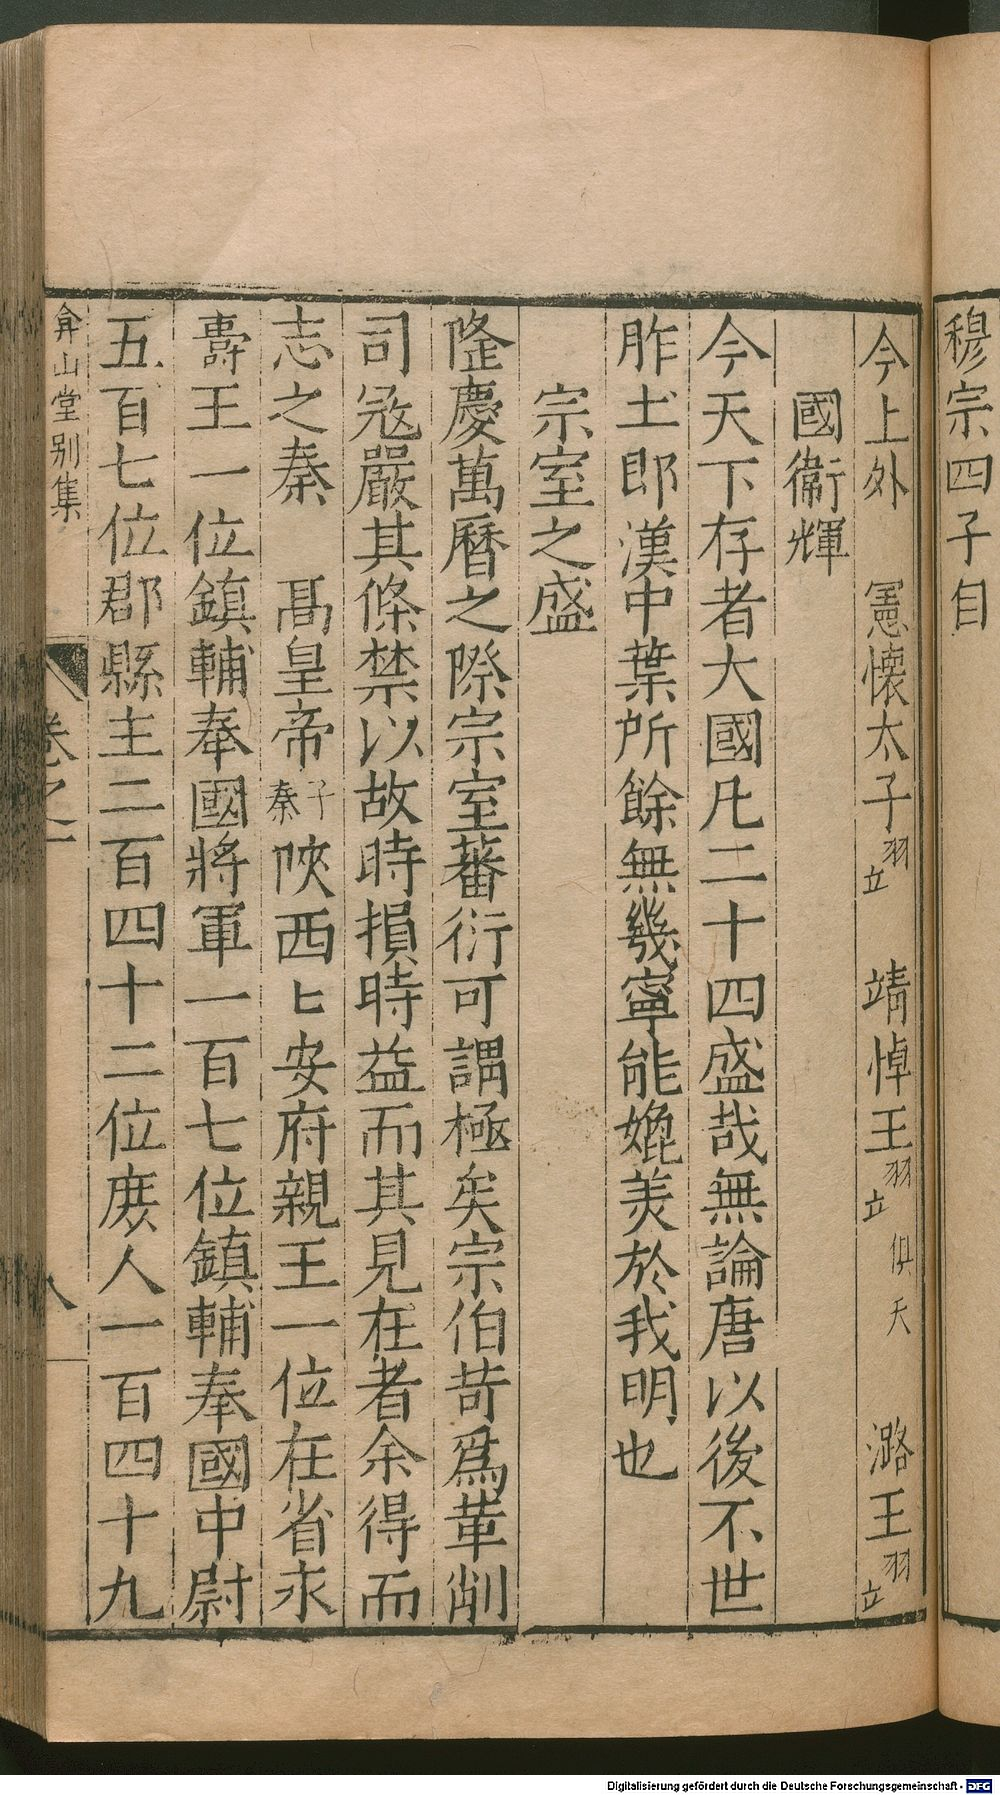 穆宗四子自
今上外　憲懷太子羽立　靖悼王羽立　俱夭　潞王羽立
國衛輝
今天下存者大國凡二十四盛哉無論唐以後不世
胙土郎漢中葉所餘無幾寧能媲美於我明也
宗室之盛
隆慶萬曆之際宗室蕃衍可謂極矣宗伯苛爲革削
司寇嚴其條禁以故時損時益而其見在者余得而
志之秦　高皇帝子秦陜西匕安府親王一位在省永
壽王一位鎮輔奉國將軍一百七位鎮輔奉國中尉
五百七位郡縣主二百四十二位庶人一百四十九
弇山堂別集　卷之二　八
Digitalisierung gefördert durch die Deutsche Forschungsgemeinschaft - DFG